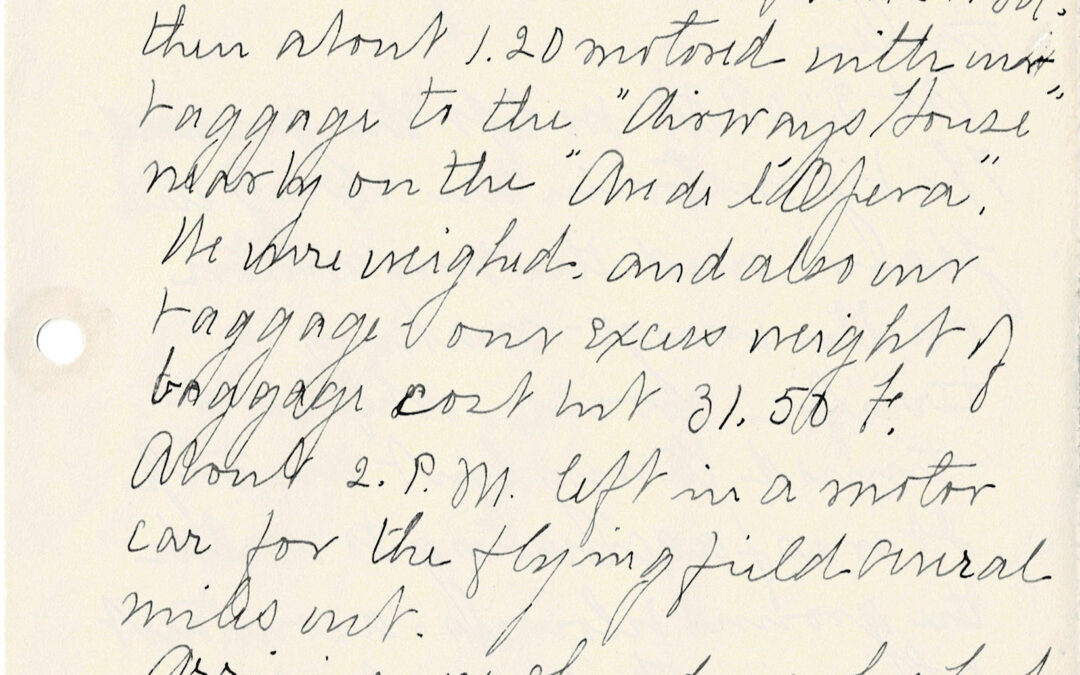 then about 1.20 motored with our
baggage to the "Airways House"
nearby on the "Ave de l'Opera".
We were weighed. and also our
baggage - our excess weight of
baggage cost but 31.50 F.
About 2. P.M. left in a motor
car for the flying field several
miles out.